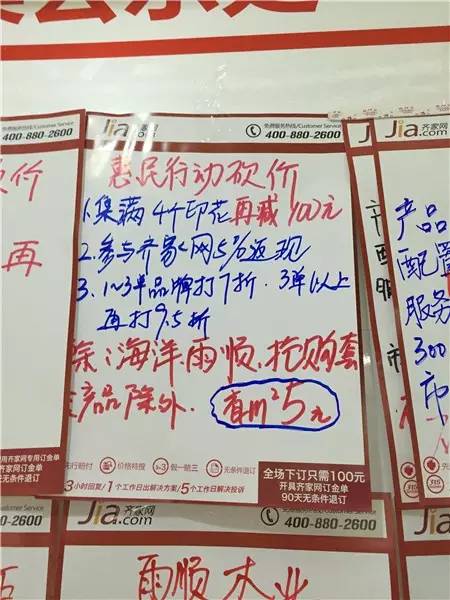 Jia.com 齐家网
免费服务热线/Customer Service
400-880-2600
惠民行动砍价
1.集满4个印花再减100元
2.参与齐家网5%返现
3.1~3单品牌打7折.3单以上
再打9.5折
除:海洋雨顺.抢购套
产品除外.
5元
先行赔付 价格特搜 假一赔三 无条件退订
3小时回复/1个工作日出解决方案/5个工作日解决投诉
全场下订只需100元
开具齐家网订金单
90天无条件退订
价
再
用齐家网专用订金单
订金单
件退订
Jia.com 齐家网
产品
配置
服务
300
Jia.com 齐家网
400-880-2600
雨顺木业